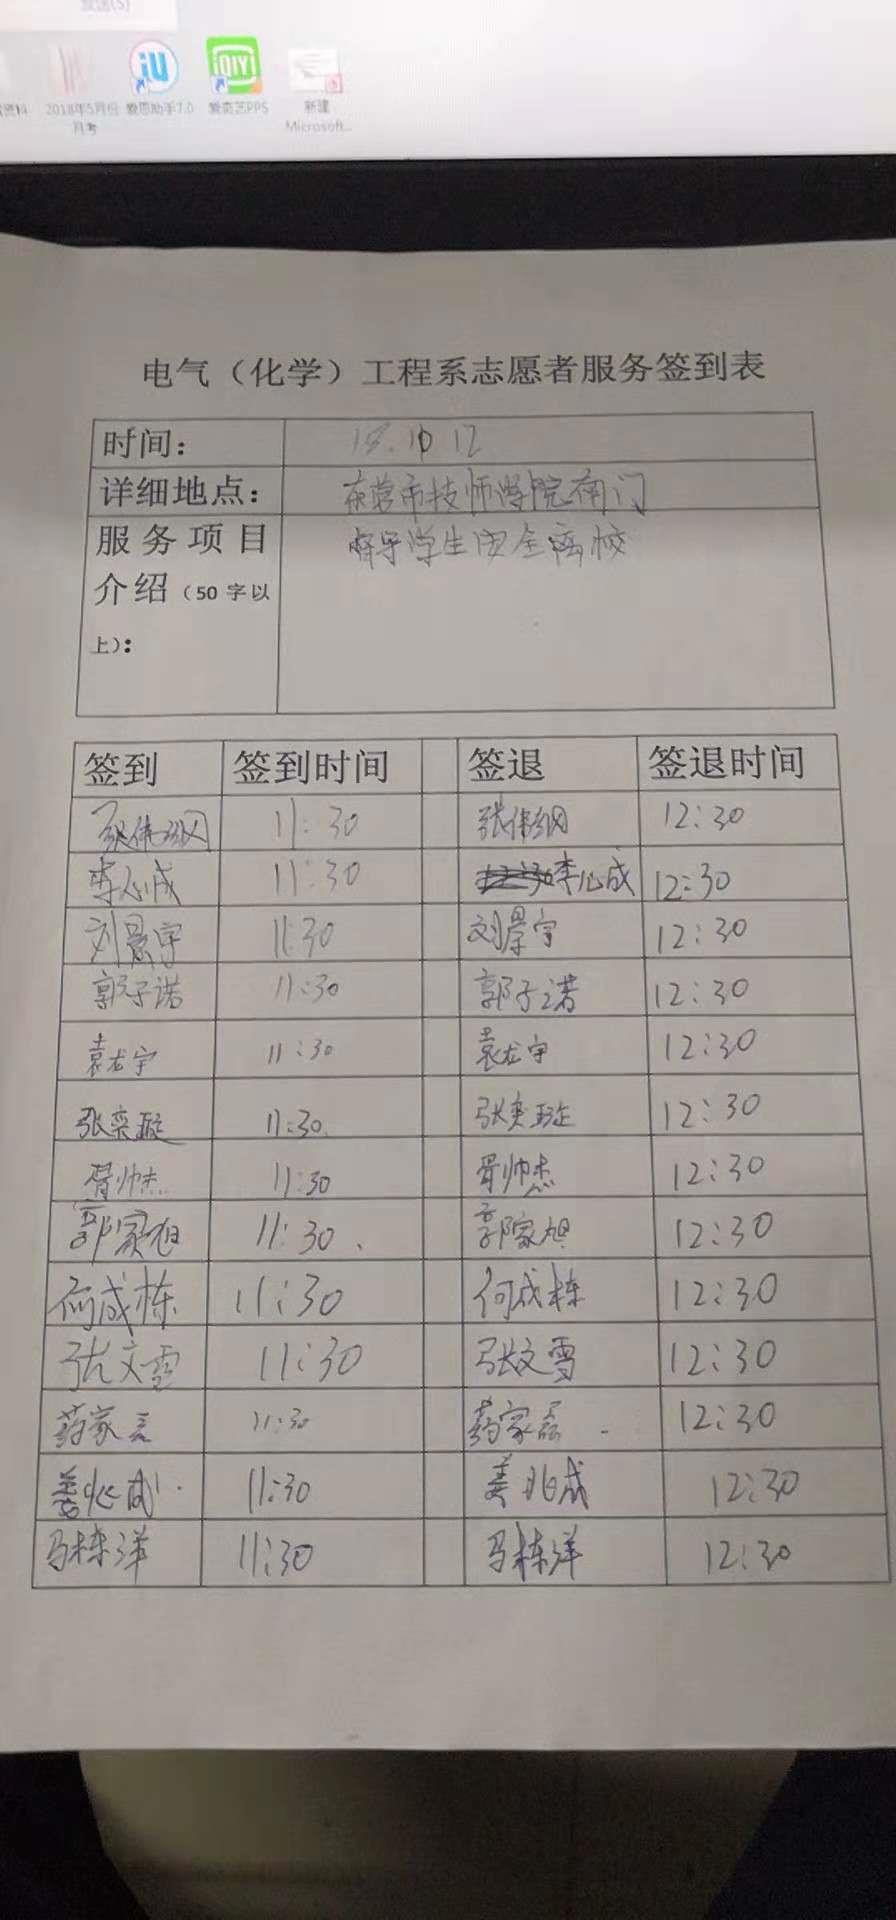 发送(S)
2018年5月份 爱思助手7.0 爱奇艺PPS 新建
月考 Microsoft...
电气（化学）工程系志愿者服务签到表
时间： 18.10 12
详细地点： 东营市技师学院南门
服务项目 学生安全离校
介绍（50字以
上）：
签到 签到时间 签退 签退时间
张伟纲 11:30 张伟纲 12:30
李心成 11:30 李心成 12:30
刘景宇 11:30 刘景宇 12:30
郭子诺 11:30 郭子诺 12:30
袁龙宇 11:30 袁龙宇 12:30
张奕璇 11:30 张奕璇 12:30
胥帅杰 11:30 胥帅杰 12:30
郭家旭 11:30 郭家旭 12:30
何成栋 11:30 何成栋 12:30
张文雪 11:30 张文雪 12:30
药家磊 11:30 药家磊 12:30
姜兆成 11:30 姜兆成 12:30
马栋洋 11:30 马栋洋 12:30